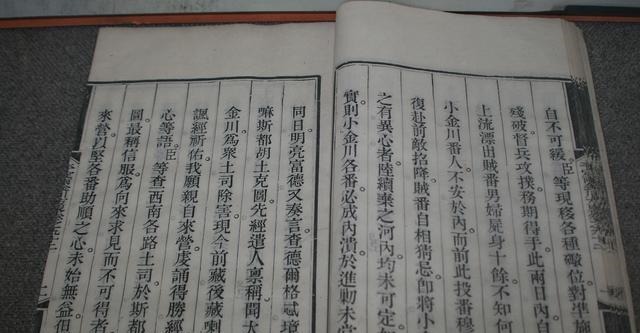 自不可緩。臣等現移各種礮位對準施
殘破督兵攻撲務期得手此兩日內
上流漂出賊番男婦屍身十餘不知何
小金川番人不安於內而前此投番穆
復赴前敵招降賊番自相猜忌卽將小
之有異心者陸續棄之河內均未可定
實則小金川各番必成內潰於進勦未
同日明亮富德又奏言查德爾格忒境
嘛斯都胡土克圖先經遣人稟稱聞大
金川爲衆土司除害現今前藏後藏喇
諷經祈佑我願親自來營虔誦得勝經
心等語。臣等查西南各路土司於斯都
圖最稱信服爲何來求見而不可得者
來營以堅各番助順之心未始無益但